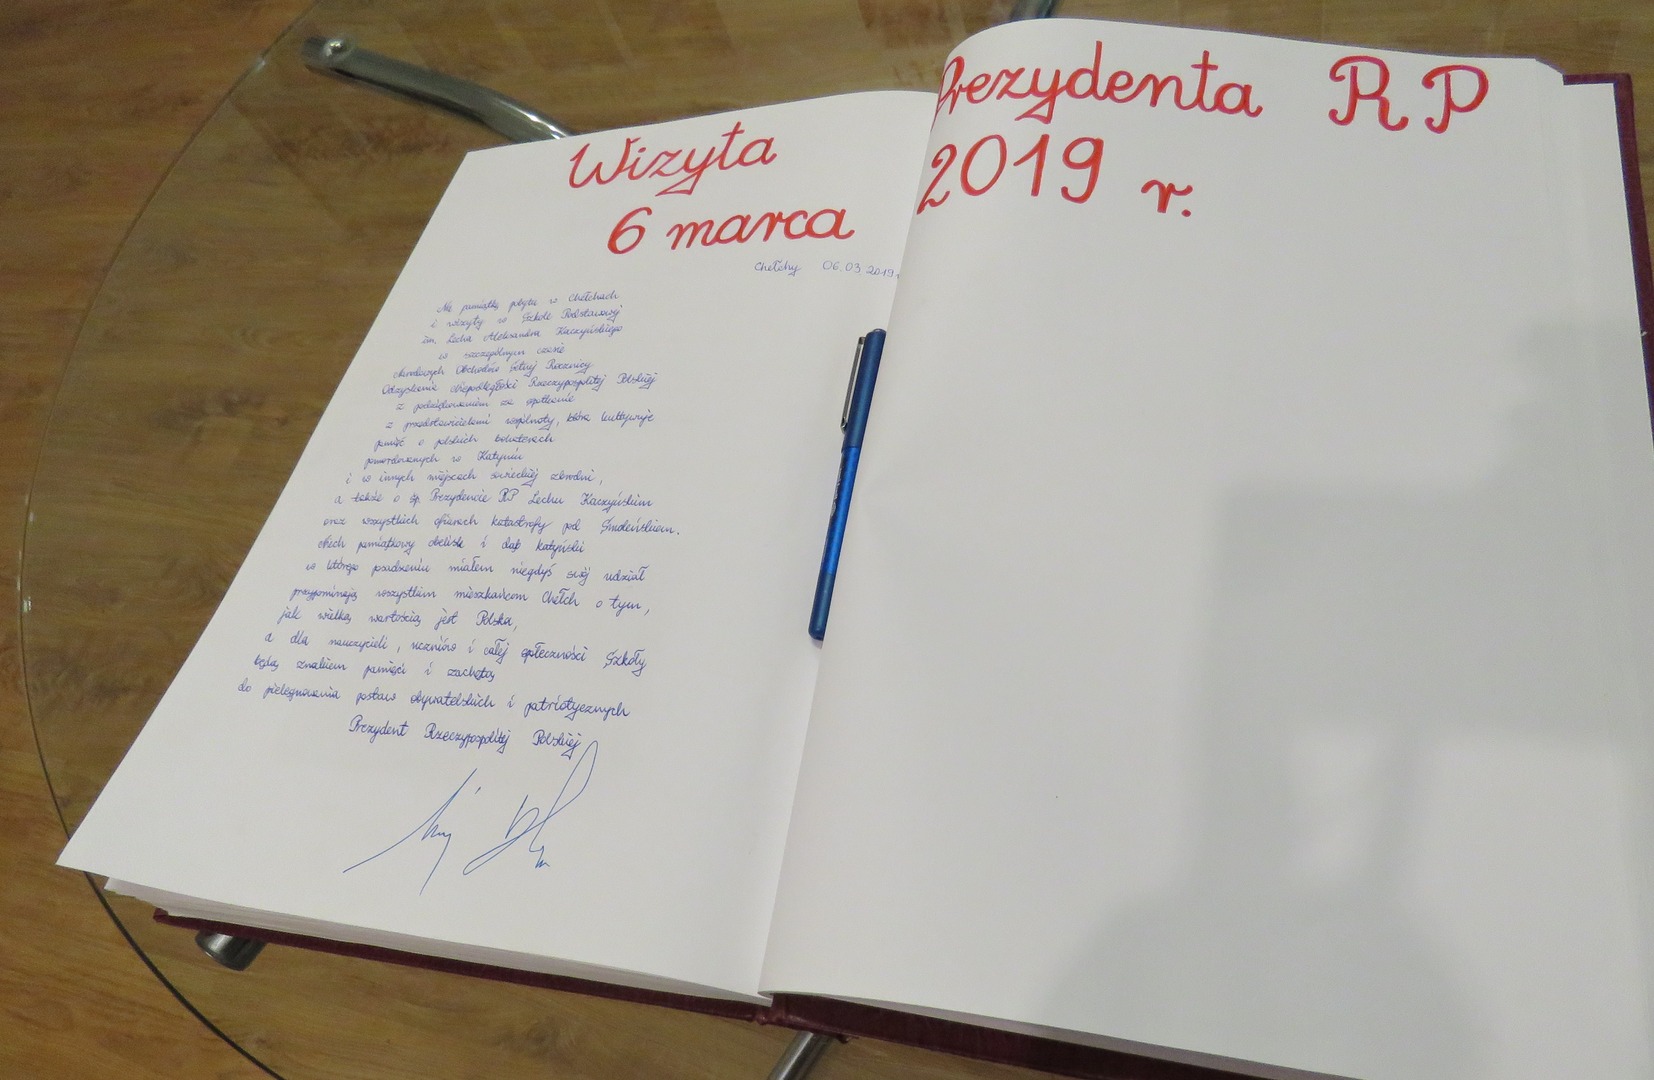 Wizyta Prezydenta RP
6 marca 2019 r.
Chełchy 06.03.2019 r.
Na pamiątkę pobytu w Chełchach
i wizyty w Szkole Podstawowej
im. Lecha Aleksandra Kaczyńskiego
w szczególnym czasie
Obchodów Setnej Rocznicy
Odzyskania Niepodległości Rzeczypospolitej Polskiej
z podziękowaniem za spotkanie
z przedstawicielami wspólnoty, która kultywuje
pamięć o polskich bohaterach
pomordowanych w Katyniu
i w innych miejscach sowieckiej zbrodni,
a także o śp. Prezydencie RP Lechu Kaczyńskim
oraz wszystkich ofiarach katastrofy pod Smoleńskiem.
Niech pamiątkowy obelisk i dąb katyński
w którego posadzeniu miałem niegdyś swój udział
przypominają wszystkim mieszkańcom Chełch o tym,
jak wielką wartością jest Polska,
a dla nauczycieli, uczniów i całej społeczności Szkoły
będą znakiem pamięci i zachętą
do pielęgnowania postaw obywatelskich i patriotycznych
Prezydent Rzeczypospolitej Polskiej